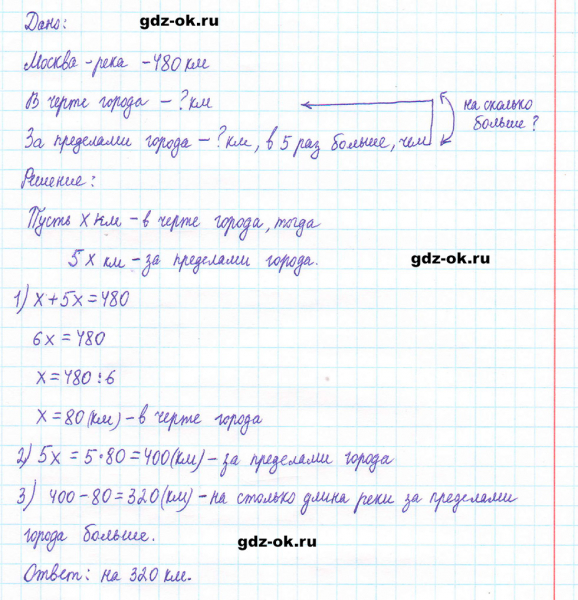 gdz-ok.ru
Дано:
Москва-река - 480 км
В черте города - ? км
на сколько
больше?
За пределами города - ? км, в 5 раз больше, чем
Решение:
Пусть x км - в черте города, тогда
5x км - за пределами города.
gdz-ok.ru
1) x + 5x = 480
6x = 480
x = 480 : 6
x = 80 (км) - в черте города
2) 5x = 5 · 80 = 400 (км) - за пределами города
3) 400 - 80 = 320 (км) - на столько длина реки за пределами
города больше.
gdz-ok.ru
Ответ: на 320 км.